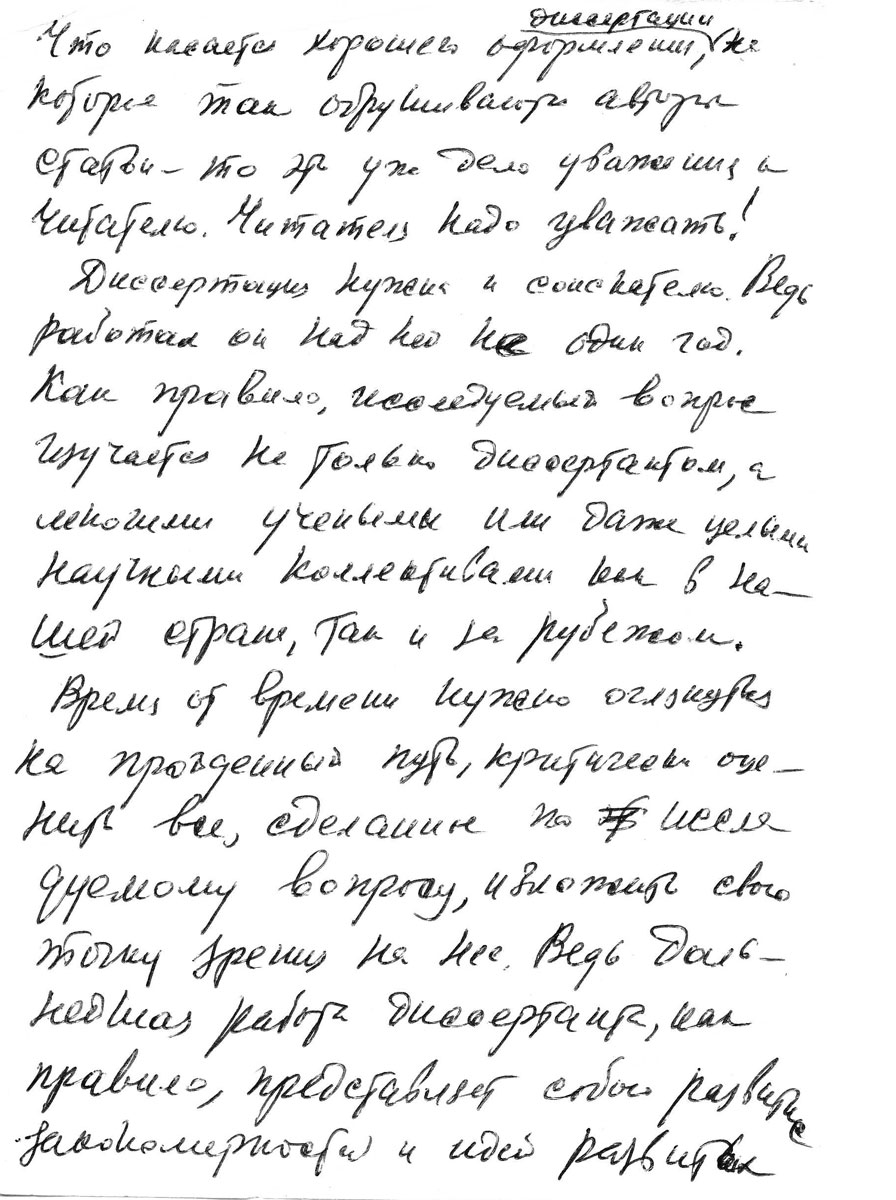 диссертации
Что касается хорошего оформления, на
которое так обрушиваются авторы
статьи – то это уже дело уважения к
читателю. Читателя надо уважать!
Диссертация нужна и соискателю. Ведь
работал он над ней не один год.
Как правило, исследуемый вопрос
изучается не только диссертантом, а
многими учеными или даже целыми
научными коллективами как в на–
шей стране, так и за рубежом.
Время от времени нужно оглянуться
на пройденный путь, критически оце–
нить все, сделанное по иссле
дуемому вопросу, изложить свою
точку зрения на нее. Ведь даль–
нейшая работа диссертанта, как
правило, представляет собою развитие
закономерностей и идей развитых